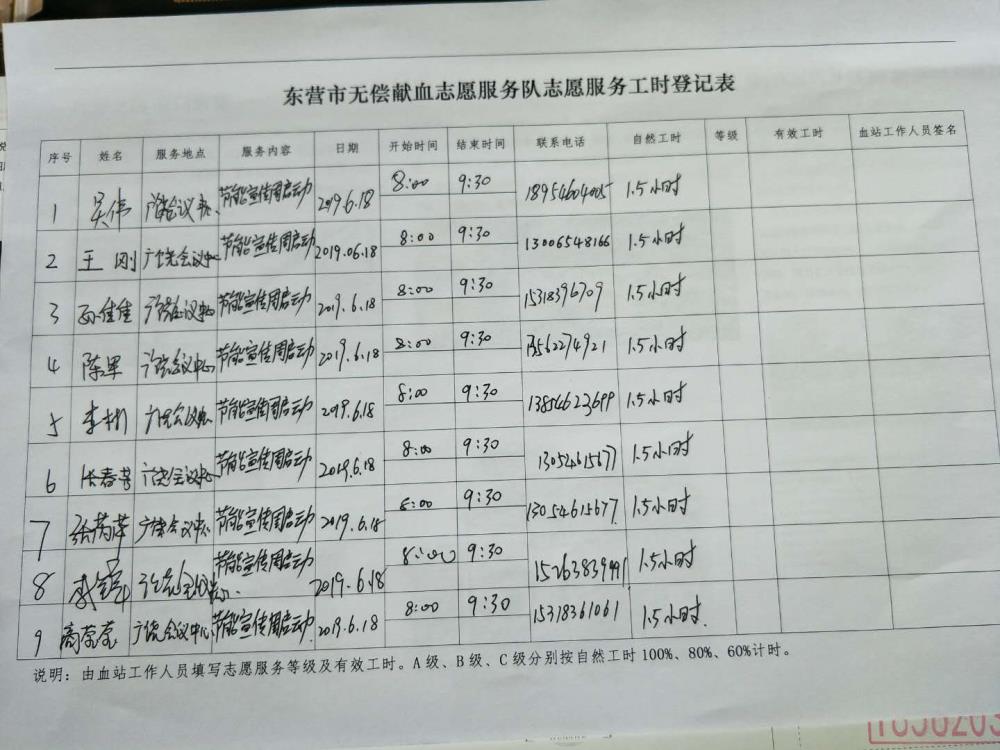 东营市无偿献血志愿服务队志愿服务工时登记表
序号 姓名 服务地点 服务内容 日期 开始时间 结束时间 联系电话 自然工时 等级 有效工时 血站工作人员签名
1 吴伟 广饶会议中心 节能宣传周启动 2019.6.18 8:00 9:30 18954604005 1.5小时
2 王刚 广饶会议中心 节能宣传周启动 2019.06.18 8:00 9:30 13006548166 1.5小时
3 孙佳佳 广饶会议中心 节能宣传周启动 2019.6.18 8:00 9:30 15318396709 1.5小时
4 陈军 广饶会议中心 节能宣传周启动 2019.6.18 8:00 9:30 13562274921 1.5小时
5 李彬 广饶会议中心 节能宣传周启动 2019.6.18 8:00 9:30 13854623699 1.5小时
6 节能宣传周启动 广饶会议中心 2019.6.18 8:00 9:30 13054615677 1.5小时
7 张芮萍 广饶会议中心 节能宣传周启动 2019.6.18 8:00 9:30 13054615677 1.5小时
8 节能宣传周启动 2019.6.18 8:00 9:30 15263839991 1.5小时
9 高蓉蓉 广饶会议中心 节能宣传周启动 2019.6.18 8:00 9:30 15318361061 1.5小时.
说明：由血站工作人员填写志愿服务等级及有效工时。A级、B级、C级分别按自然工时100%、80%、60%计时。